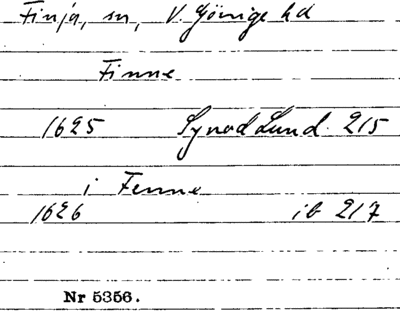 Finja, sn, V. Göinge hd
Finne
1625 Synod Lund. 215
i Fenne
1626 ib 217
Nr 5356.